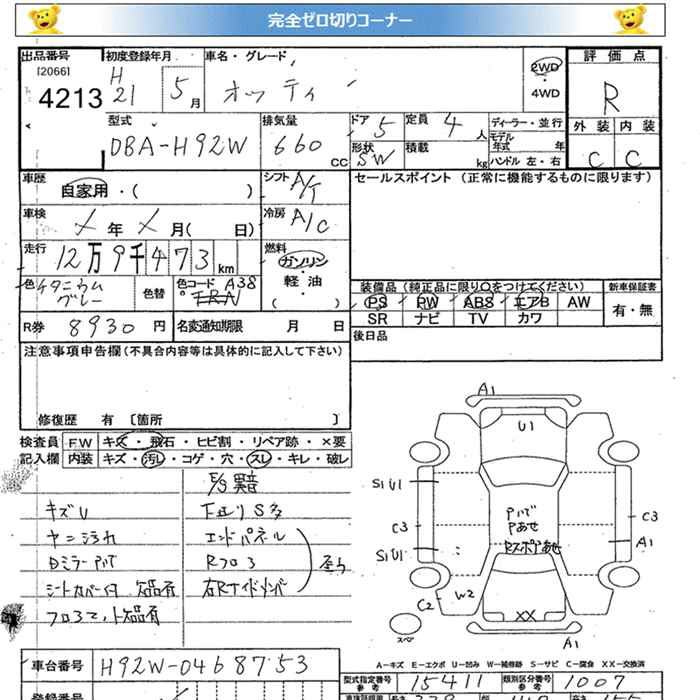 完全ゼロ切りコーナー
出品番号 [2066] 4213
初度登録年月 H21 5月
車名・グレード オッティ
2WD・4WD
評価点 R
型式 DBA-H92W
排気量 660 CC
ドア 5 形状 SW
定員 4 人 積載 kg
ディーラー・並行
モデル年式 年
ハンドル 左・右
外装 C 内装 C
車歴 自家用・( )
シフト A/T
セールスポイント (正常に機能するものに限ります)
車検 年 月( 日)
冷房 A/C
走行 12万9千473km
燃料 ガソリン・軽油・( )
色 チタニウムグレー 色替 色コード A38
装備品 (純正品に限り○をつけてください) 新車保証書
PS PW ABS エアB AW 有・無
SR ナビ TV カワ
R券 8930円 名変通知期限 月 日
後日品
注意事項申告欄 (不具合内容等は具体的に記入して下さい)
修復歴 有 〔箇所 〕
検査員 FW キズ・飛石・ヒビ割・リペア跡・×要
記入欄 内装 キズ・汚レ・コゲ・穴・スレ・キレ・破レ
キズU
ヤニ汚れ
シートカバー付 欠品有
フロアマット欠品有
下廻りS多
エンドパネル
Rフロア
右Rサイドメンバ
A1
U1
S1U1
C3
C3
S1U1
A1
C2
W2
XX
A1
スペア
A-キズ E-エクボ U-凹み W-補修跡 S-サビ C-腐食 XX-交換済
車台番号 H92W-0468753
型式指定番号 参考 15411 類別区分番号 参考 1007
登録番号